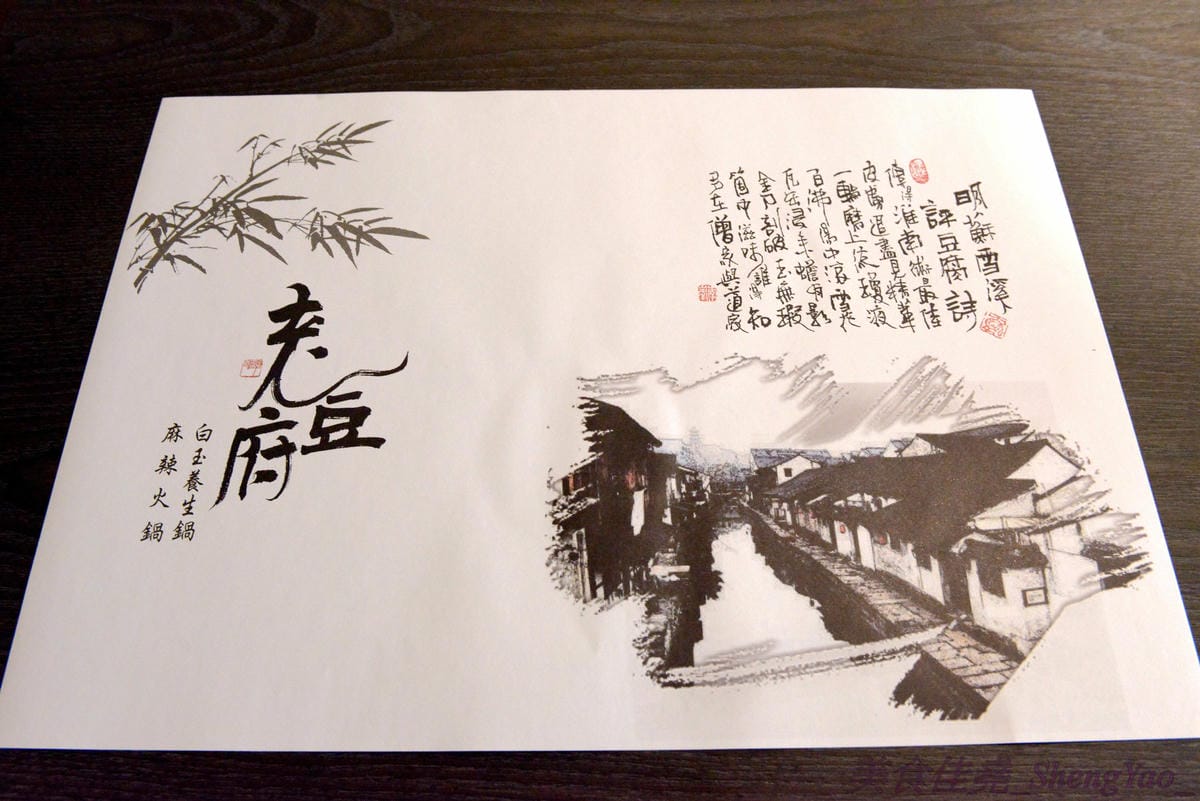 明蘇雪溪
評豆腐詩
傳得淮南術最佳
皮膚退盡見精華
一輪磨上流瓊液
百沸湯中滾雪花
瓦缶浸來蟾有影
金刀剖破玉無瑕
箇中滋味誰得知
多在僧家與道家
老豆府
白玉養生鍋
麻辣火鍋
美食佳堯_ShengYao